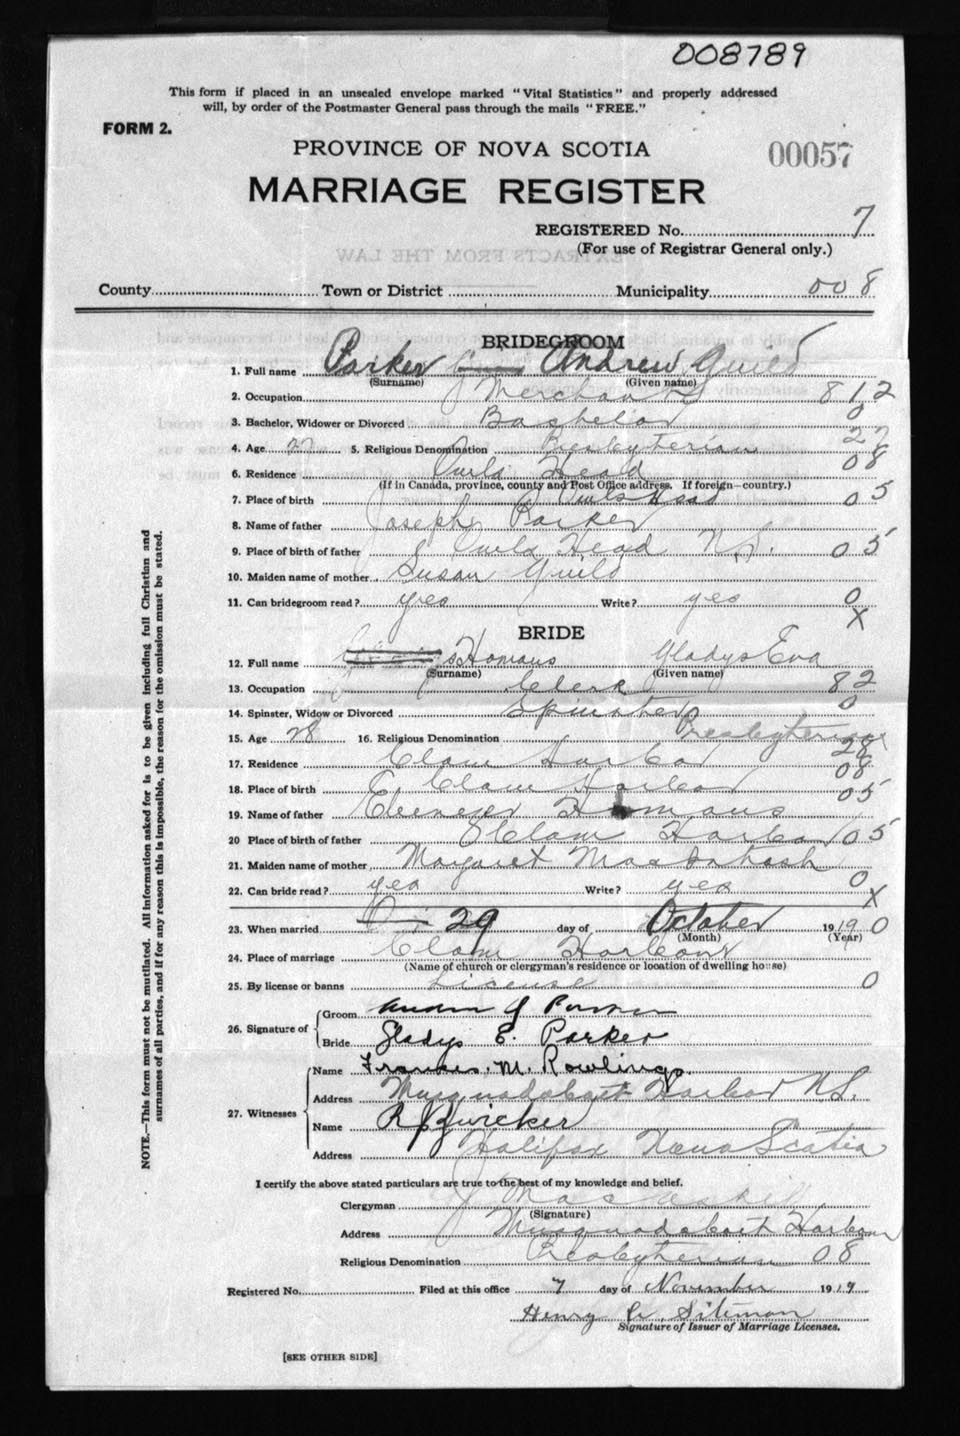 008789
This form if placed in an unsealed envelope marked "Vital Statistics" and properly addressed
will, by order of the Postmaster General pass through the mails "FREE."
FORM 2.
PROVINCE OF NOVA SCOTIA
00057
MARRIAGE REGISTER
REGISTERED No. 7
(For use of Registrar General only.)
EXTRACTS FROM THE LAW
County Town or District Municipality 008
BRIDEGROOM
1. Full name Parker Andrew Guild
(Surname) (Given name)
2. Occupation Merchant 812
3. Bachelor, Widower or Divorced Bachelor 0
4. Age 27 5. Religious Denomination Presbyterian 27
6. Residence Owls Head 08
(If in Canada, province, county and Post Office address. If foreign—country.)
7. Place of birth Owls Head 05
8. Name of father Joseph Parker
9. Place of birth of father Owls Head N.S. 05
10. Maiden name of mother Susan Guild
11. Can bridegroom read? yes Write? yes 0
X
BRIDE
12. Full name Homans Gladys Eva
(Surname) (Given name)
13. Occupation Clerk 82
14. Spinster, Widow or Divorced Spinster 0
15. Age 28 16. Religious Denomination Presbyterian
28
17. Residence Clam Harbor 08
18. Place of birth Clam Harbor 05
19. Name of father Ebenezer Homans
20 Place of birth of father Clam Harbor 05
21. Maiden name of mother Margaret MacIntosh
22. Can bride read? yes Write? yes 0
X
23. When married 29 day of October 1919 0
(Month) (Year)
24. Place of marriage Clam Harbour
(Name of church or clergyman's residence or location of dwelling house)
25. By license or banns License 0
26. Signature of Groom Andrew G Parker
Bride Gladys E. Parker
27. Witnesses Name Frances. M. Rowlings.
Address Musquodoboit Harbor N.S.
Name R Zwicker
Address Halifax Nova Scotia
I certify the above stated particulars are true to the best of my knowledge and belief.
Clergyman J Macaskill
(Signature)
Address Musquodoboit Harbour
Religious Denomination Presbyterian 08
Registered No. Filed at this office 7 day of November 1919
Henry Siteman
Signature of Issuer of Marriage Licenses.
[SEE OTHER SIDE]
NOTE.—This form must not be mutilated. All information asked for is to be given including full Christian and
surnames of all parties, and if for any reason this is impossible, the reason for the omission must be stated.